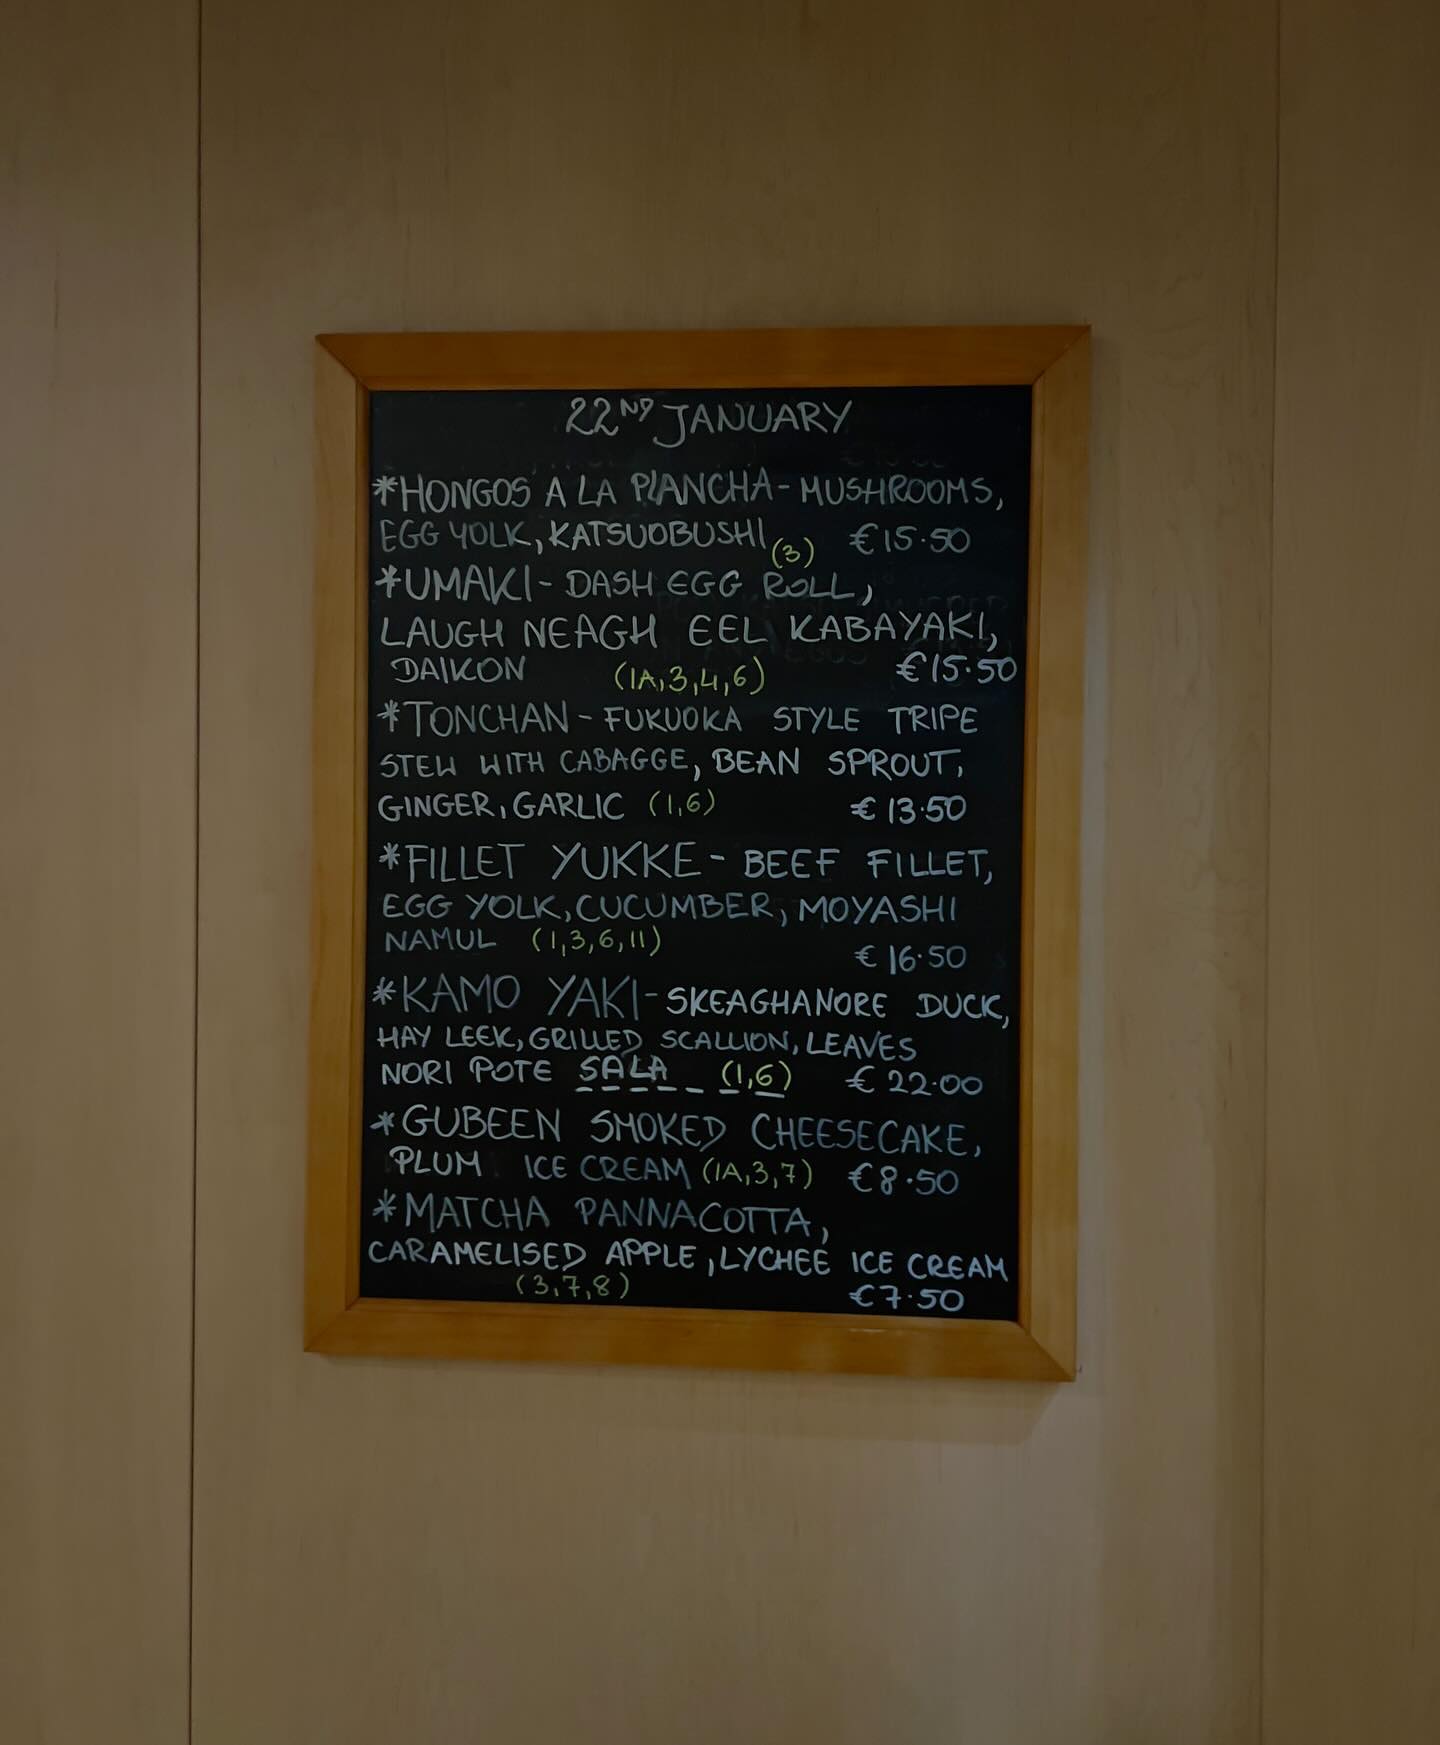 22ND JANUARY
*HONGOS A LA PLANCHA - MUSHROOMS,
EGG YOLK, KATSUOBUSHI (3) €15.50
*UMAKI - DASH EGG ROLL,
LAUGH NEAGH EEL KABAYAKI,
DAIKON (1A,3,4,6) €15.50
*TONCHAN - FUKUOKA STYLE TRIPE
STEW WITH CABAGGE, BEAN SPROUT,
GINGER, GARLIC (1,6) €13.50
*FILLET YUKKE - BEEF FILLET,
EGG YOLK, CUCUMBER, MOYASHI
NAMUL (1,3,6,11) €16.50
*KAMO YAKI - SKEAGHANORE DUCK,
HAY LEEK, GRILLED SCALLION, LEAVES
NORI POTE SALA (1,6) €22.00
*GUBEEN SMOKED CHEESECAKE,
PLUM ICE CREAM (1A,3,7) €8.50
*MATCHA PANNACOTTA,
CARAMELISED APPLE, LYCHEE ICE CREAM
(3,7,8) €7.50